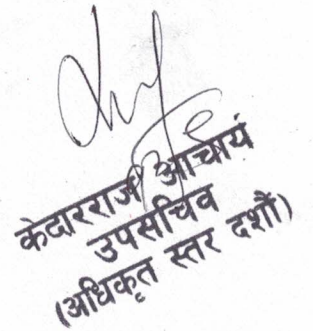 केदारराज आचार्य
उपसचिव
(अधिकृत स्तर दशौं)